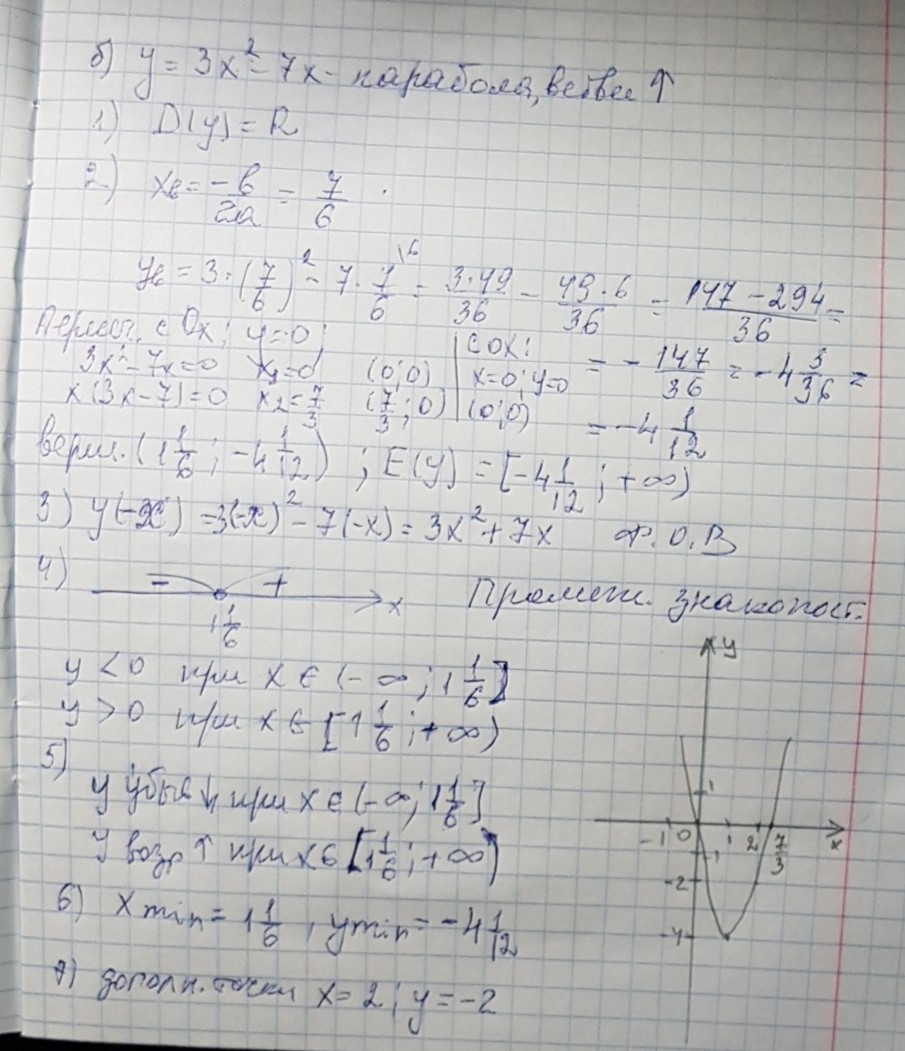 б) y = 3x² - 7x - парабола, ветви ↑
1) D(y) = R
2) xв = -b/2a = 7/6
yв = 3·(7/6)² - 7·7/6 \6 = 3·49/36 - 49·6/36 = 147-294/36 =
= -147/36 = -4 3/36 =
= -4 1/12
Пересеч. с Ox; y=0;
3x²-7x=0 x₁=0 (0;0)
x(3x-7)=0 x₂=7/3 (7/3;0)
с OX:
x=0; y=0
(0;0)
верш. (1 1/6; -4 1/12); E(y) = [-4 1/12; +∞)
3) y(-x) = 3(-x)² - 7(-x) = 3x² + 7x Ф.О.В
4) - + x Промеж. знакопост.
1 1/6
y < 0 при x ∈ (-∞; 1 1/6]
y > 0 при x ∈ [1 1/6; +∞)
5)
y убыв ↓ при x ∈ (-∞; 1 1/6]
y возр ↑ при x ∈ [1 1/6; +∞)
6) x min = 1 1/6, y min = -4 1/12
7) дополн. точки x = 2; y = -2
y
1
-1 0 1 2 7/3 x
-1
-2
-4